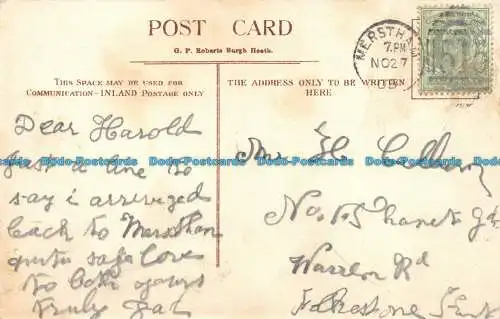 POST CARD
G. P. Roberts Burgh Heath.
THIS SPACE MAY BE USED FOR
COMMUNICATION—INLAND POSTAGE ONLY
THE ADDRESS ONLY TO BE WRITTEN
HERE.
MERSTHAM
7.PM
NO 27
Dear Harold
Just a line to
say i arreveged
back to Mersthan
quite safe Love
to both yours
truly
Mr H.
No
Warren Rd
Folkestone Kent
Dodo-Postcards Dodo-Postcards Dodo-Postcards Dodo-Postcards